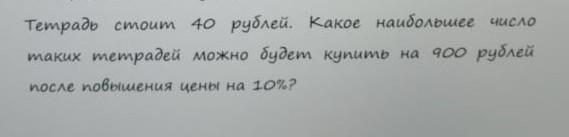 Тетрадь стоит 40 рублей. Какое наибольшее число
таких тетрадей можно будет купить на 900 рублей
после повышения цены на 10%?